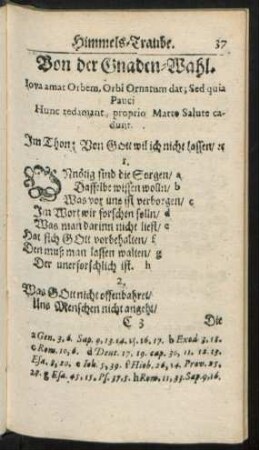 Himmels-Traube. 37
Von der Gnaden-Wahl.
Iova amat Orbem, Orbi Ornatum dat; Sed quia
Pauci
Hunc redamant, proprio Marte Salute ca-
dunt.
Im Thon: Von GOtt wil ich nicht lassen/ ꝛc
1.
UNnötig sind die Sorgen/ a
Dasselbe wissen wolln/ b
Was vor uns ist verborgen/ c
Im Wort wir forschen solln/ d
Was man darinn nicht liest/ e
Hat sich GOtt vorbehalten/ f
Den muß man lassen walten/ g
Der unerforschlich ist. h
2.
Was GOtt nicht offenbahret/
Uns Menschen nicht angeht/
C 3 Die
a Gen. 3, 6. Sap. 9, 13. 14. 15. 16. 17. b Exod. 3, 18.
c Rom. 10, 6. d Deut. 17, 19. cap. 30, 11. 12. 13.
Esa. 8, 20. e Ioh. 5, 39. f Hiob. 26, 14. Prov. 25,
28. g Esa. 45, 15. Ps. 37, 5. h Rom. 11, 33. Sap. 9, 16.